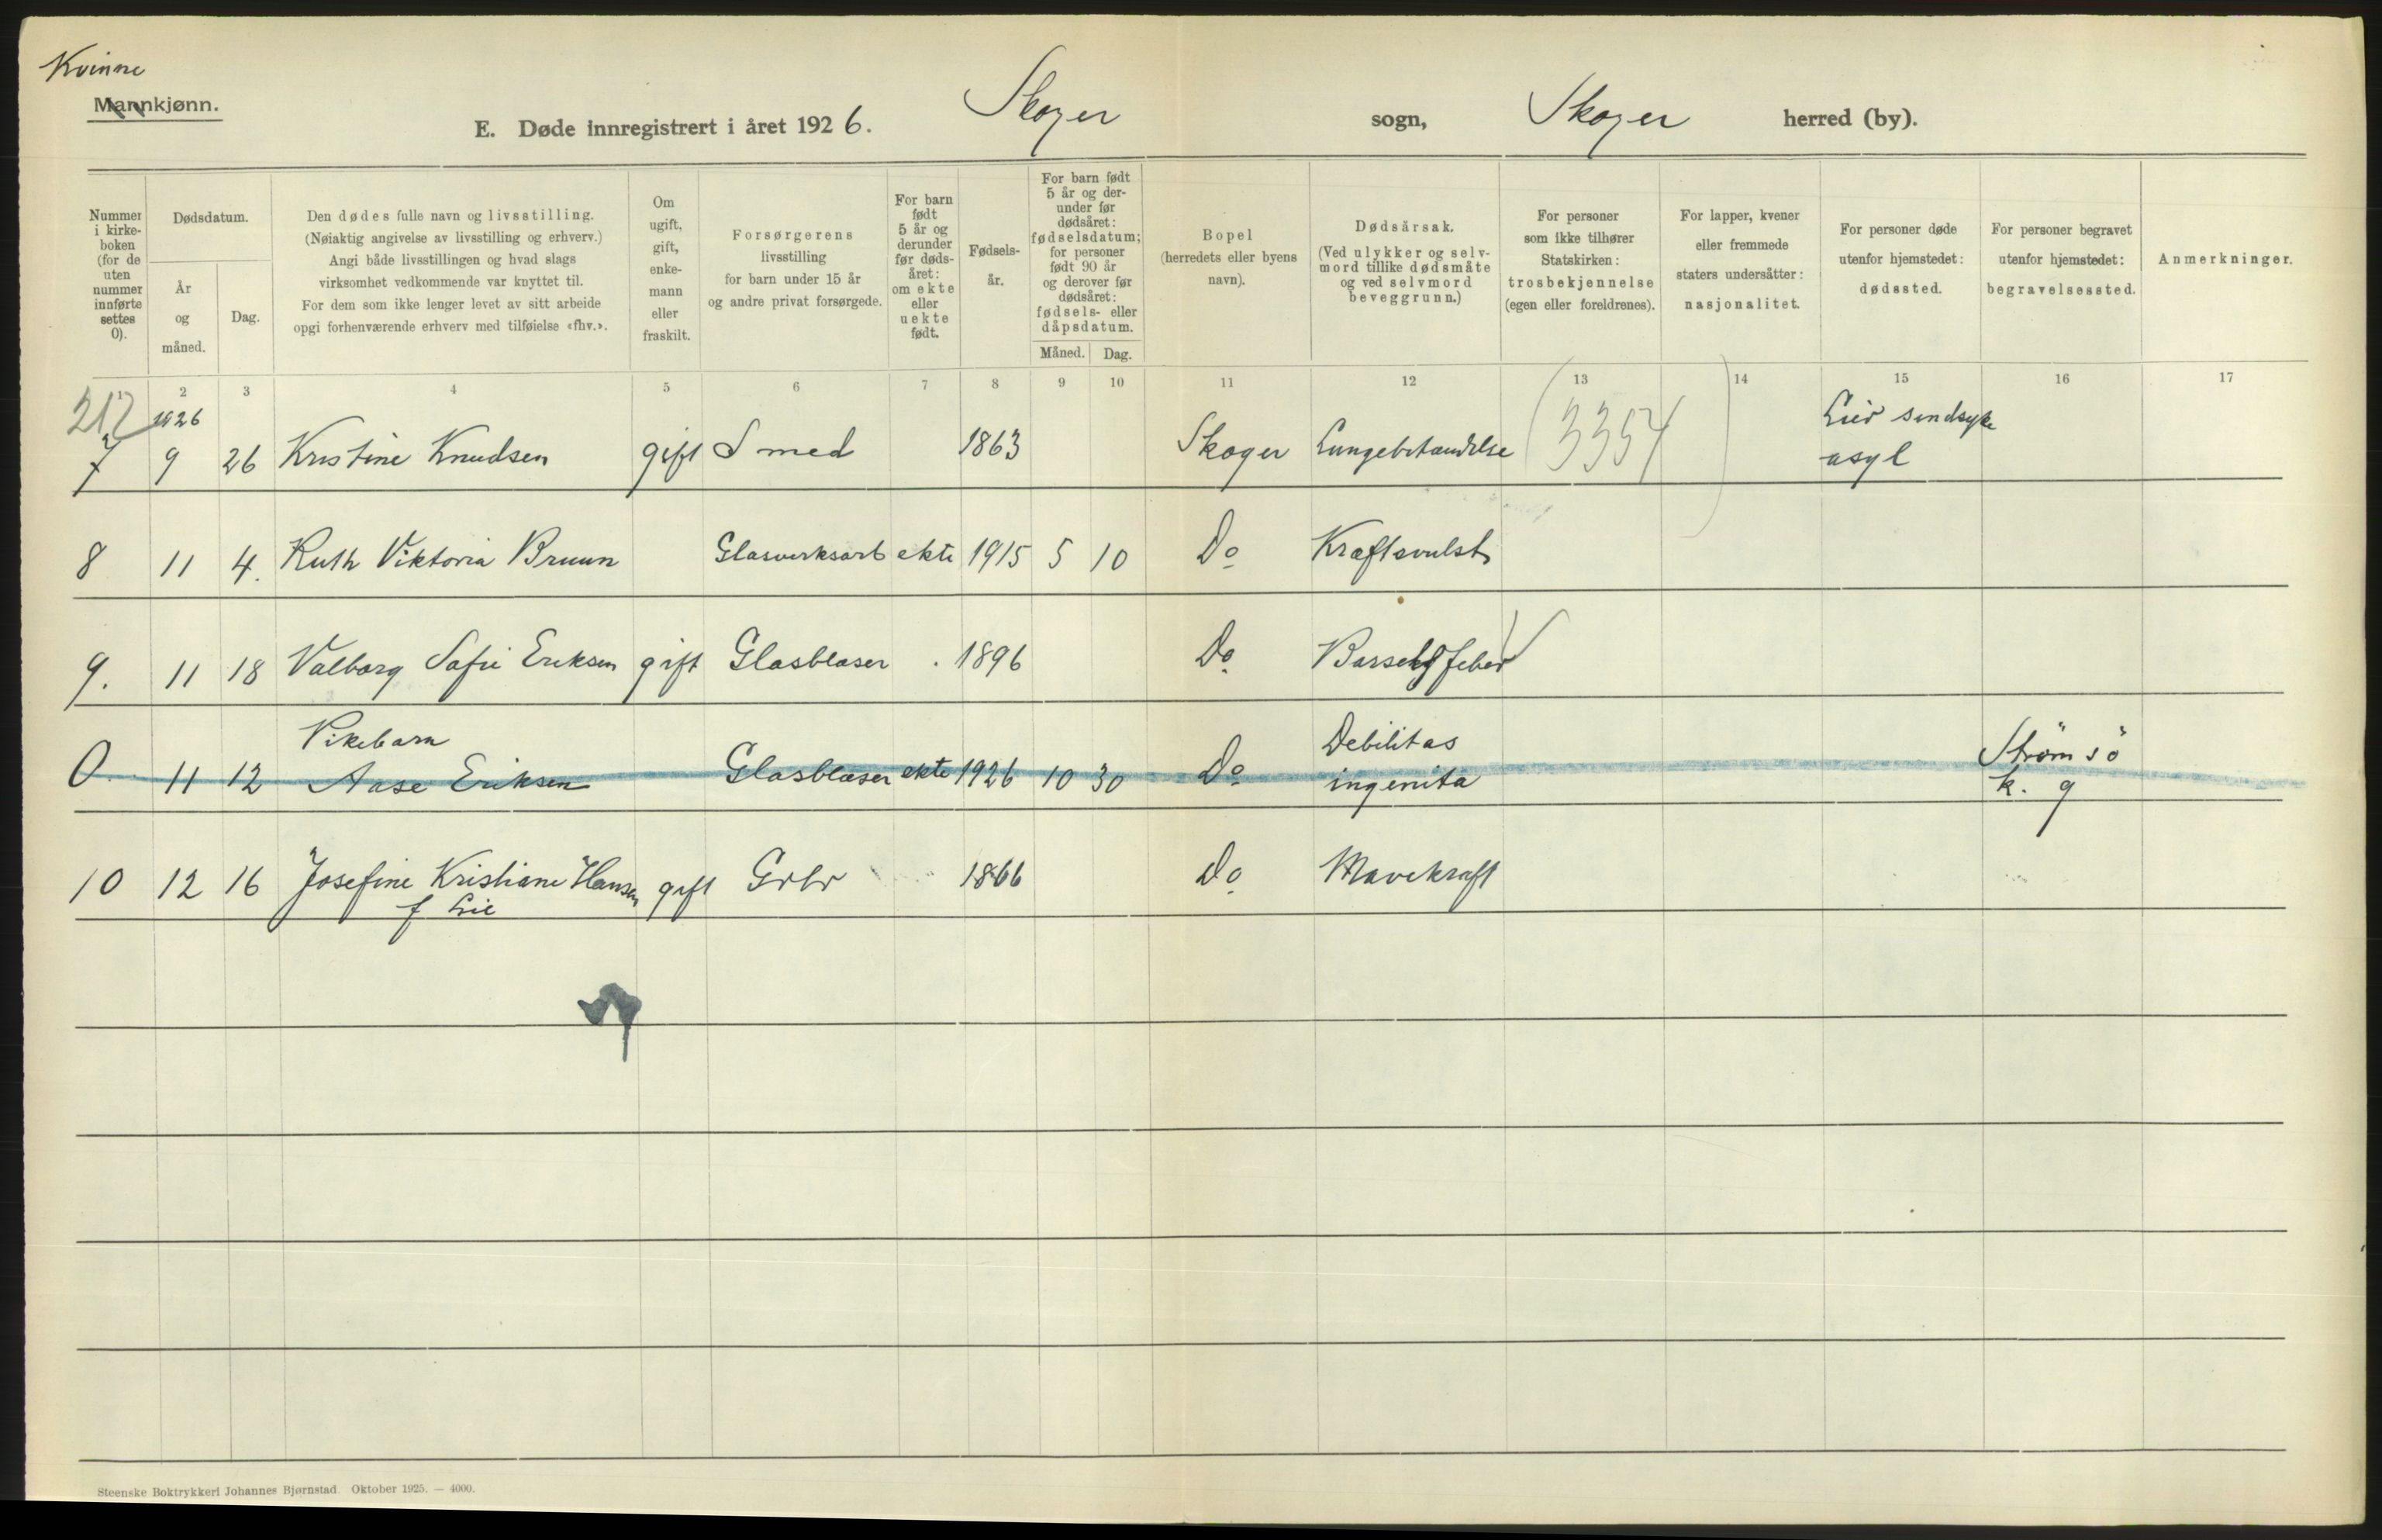 Kvinne
Mannkjønn.
E. Døde innregistrert i året 1926. Skoger sogn, Skoger herred (by).
Nummer i kirke-boken (for de uten nummer innførte settes 0).
Dødsdatum.
År og måned.
Dag.
Den dødes fulle navn og livsstilling.
(Nøiaktig angivelse av livsstilling og erhverv.)
Angi både livsstillingen og hvad slags
virksomhet vedkommende var knyttet til.
For dem som ikke lenger levet av sitt arbeide
opgi forhenværende erhverv med tilføielse «fhv.».
Om ugift, gift, enke-mann eller fraskilt.
Forsørgerens
livsstilling
for barn under 15 år
og andre privat forsørgede.
For barn født 5 år og derunder før døds-året: om ekte eller uekte født.
Fødsels-år.
For barn født 5 år og der-under før dødsåret: fødselsdatum; for personer født 90 år og derover før dødsåret: fødsels- eller dåpsdatum.
Måned. Dag.
Bopel
(herredets eller byens
navn).
Dødsårsak.
(Ved ulykker og selv-
mord tillike dødsmåte
og ved selvmord
beveggrunn.)
For personer
som ikke tilhører
Statskirken:
trosbekjennelse
(egen eller foreldrenes).
For lapper, kvener
eller fremmede
staters undersåtter:
nasjonalitet.
For personer døde
utenfor hjemstedet:
dødssted.
For personer begravet
utenfor hjemstedet:
begravelsessted.
Anmerkninger.
1 2 3 4 5 6 7 8 9 10 11 12 13 14 15 16 17
212 1926
7 9 26 Kristine Knudsen gift Smed 1863 Skoger Lungebetændelse (3354) Lier sindsyke
asyl
8 11 4. Ruth Viktoria Bruun Glasverksarb ekte 1915 5 10 Do Kræftsvulst
9. 11 18 Valborg Sofie Eriksen gift Glasblaser 1896 Do Barselsfeber
Pikebarn Debilitas Strömsö
0 11 12 Aase Eriksen Glasblæser ekte 1926 10 30 Do ingenita k. g
10 12 16 Josefine Kristiane Hansen gift Grbr 1866 Do Mavekræft
f Lie
Steenske Boktrykkeri Johannes Bjørnstad. Oktober 1925. — 4000.